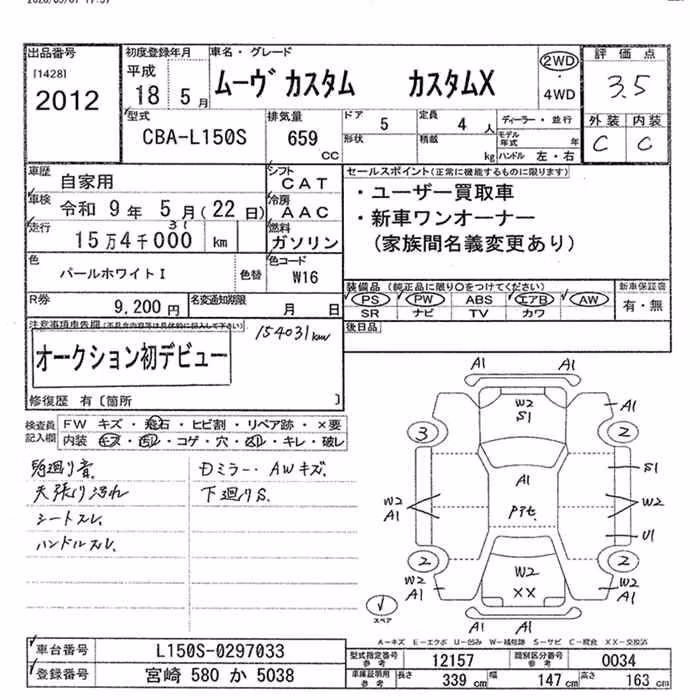 出品番号 初度登録年月 車名・グレード 評価点
[1428] 平成 ムーヴ カスタム カスタムX 2WD
2012 18 5月 ・4WD 3.5
型式 排気量 ドア 5 定員 4人 ディーラー・並行 外装 内装
CBA-L150S 659 CC 形状 積載 kg モデル年式 年 C C
ハンドル 左・右
車歴 自家用 シフト CAT セールスポイント(正常に機能するものに限ります)
車検 令和 9年 5月(22日) 冷房 AAC ・ユーザー買取車
走行 15万4千000 km 燃料 ガソリン ・新車ワンオーナー
31
(家族間名義変更あり)
色 パールホワイトI 色替 色コード W16
装備品(純正品に限り○をつけてください) 新車保証書
R券 9,200円 名変通知期限 月 日 PS PW ABS エアB AW 有・無
SR ナビ TV カワ
注意事項車告欄(不具合内容等は具体的に記入して下さい) 154031km 後日品
オークション初デビュー
修復歴 有〔箇所 〕
検査員記入欄 FW キズ・飛石・ヒビ割・リペア跡・×要
内装 キズ・汚れ・コゲ・穴・凹・キレ・破レ
Dミラー・AWキズ.
天張り汚れ 下廻りS.
シートスレ.
ハンドルスレ.
A1
A1
W2
S1
A1
3 2
A1 S1
W2 A1 W2
U1
2 2
W2 A1 W2 XX W2 A1
A1
A1
スペア
A－キズ E－エクボ U－凹み W－補修跡 S－サビ C－腐食 XX－交換済
車台番号 L150S-0297033
登録番号 宮崎 580 か 5038
型式指定番号 参考 12157 類別区分番号 参考 0034
車庫証明用 参考 長さ 339cm 幅 147cm 高さ 163cm